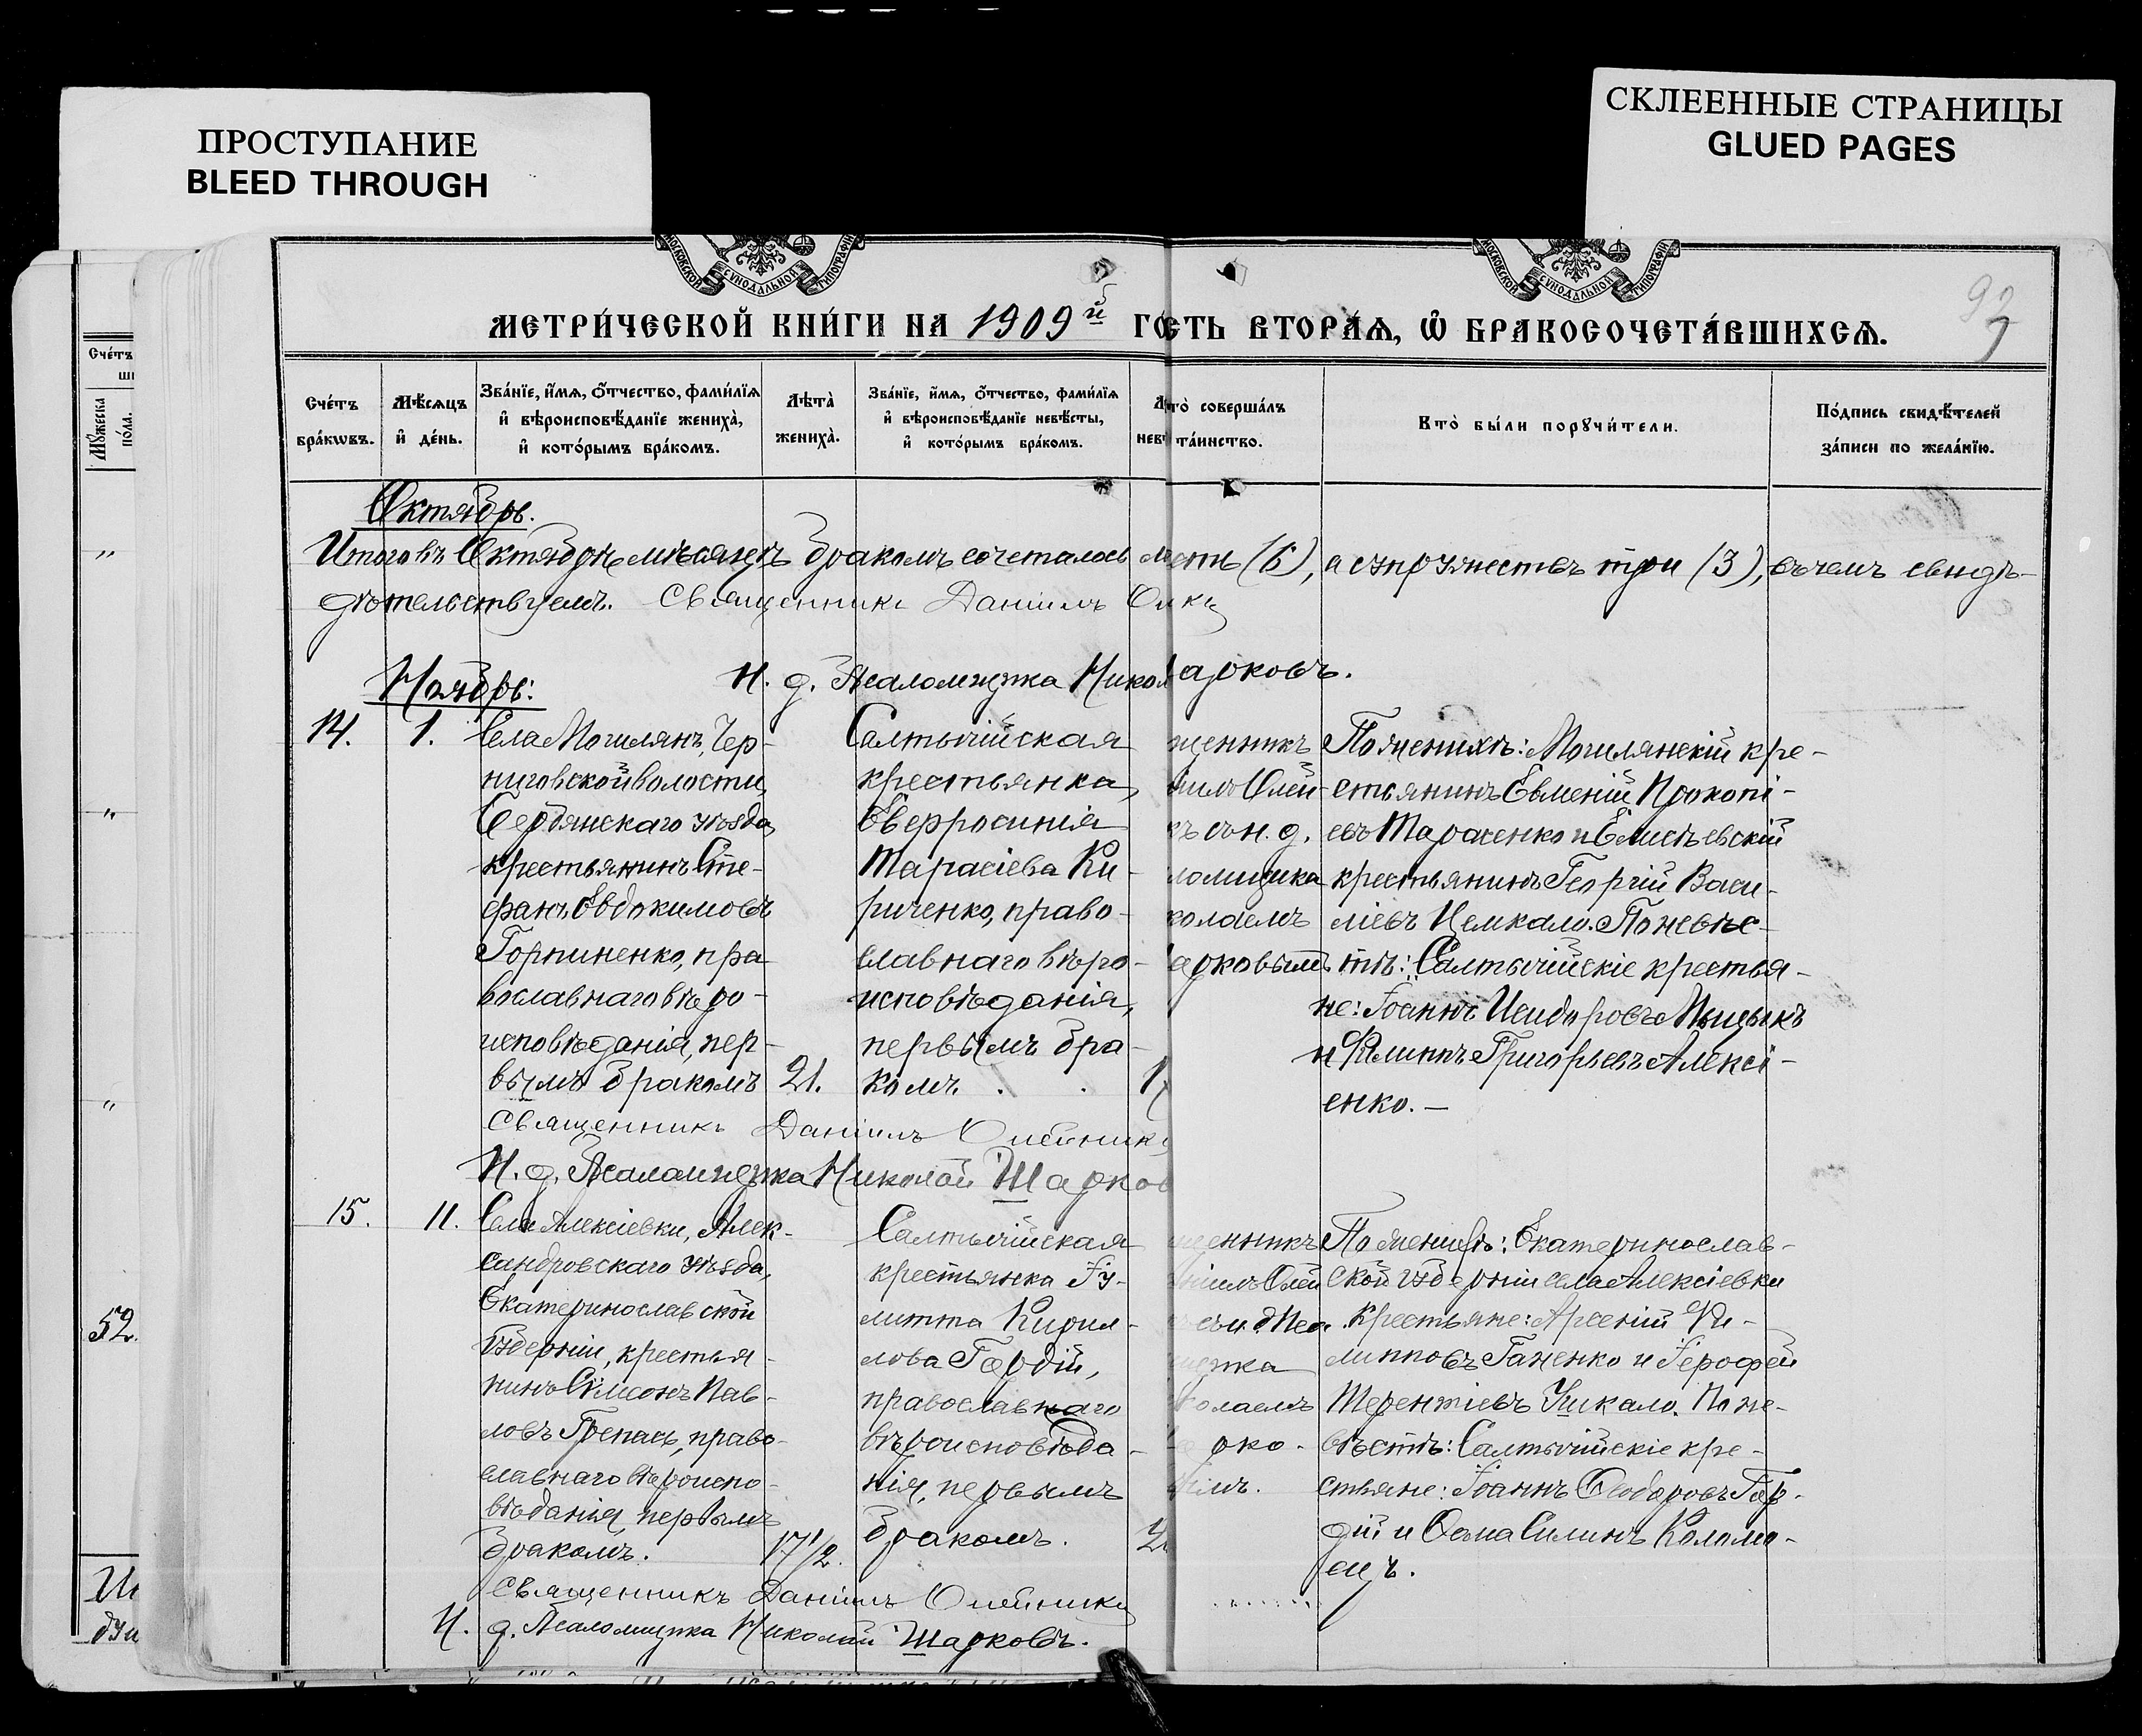 ПРОСТУПАНИЕ
BLEED THROUGH
СКЛЕЕННЫЕ СТРАНИЦЫ
GLUED PAGES
МОСКОВСКОЙ СѴНОДАЛЬНОЙ ТИПОГРАФІИ
МОСКОВСКОЙ СѴНОДАЛЬНОЙ ТИПОГРАФІИ
МЕТРИ́ЧЕСКОЙ КНИ́ГИ НА 1909й ГО
СТЬ ВТОРА́Ѧ, Ѽ БРАКОСОЧЕТА́ВШИХСѦ.
Сче́тъ
бра́кѡвъ.
Мѣ́сѧцъ
и҆ де́нь.
Зва́нїе, и҆́мѧ, ѻ҆́тчество, фами́лїѧ
и҆ вѣроисповѣ́данїе жениха̀,
и҆ кото́рымъ бра́комъ.
Лѣта̀
жениха̀.
Зва́нїе, и҆́мѧ, ѻ҆́тчество, фами́лїѧ
и҆ вѣроисповѣ́данїе невѣ́сты,
и҆ кото́рымъ бра́комъ.
Л
невѣ
то̀ соверша́лъ
та́инство.
Кто̀ бы́ли порꙋчи́тели.
По́дпись свидѣ́телей
за́писи по жела́нїю.
Сче́тъ
Мꙋ́жеска
по́ла.
52.
Октябрь.
Итого въ Октябрѣ мѣсяцѣ бракомъ сочеталось
есть (6), а супружествъ три (3), въ чемъ свидѣ-
дѣтельствуемъ. Священникъ Даніилъ
Н. д. Псаломщика Никол
арковъ.
Ноябрь:
14.
1.
Села Могилянъ, Чер-
ниговской волости,
Бердянскаго уѣзда,
крестьянинъ Сте-
фанъ Евдокимовъ
Горпиненко, пра-
вославнаго вѣро-
исповѣданія, пер-
вымъ бракомъ
21.
Салтычійская
крестьянка,
Евфросинія
Тарасіева Ки-
риченко, право-
славнаго вѣро-
исповѣданія,
первымъ бра-
комъ.
1
щенникъ
ніилъ Олей-
къ съ н. д.
ломщика
колаемъ
арковымъ
По женихѣ: Могилянскій кре-
стьянинъ Евменій Прокопі-
евъ Тарасенко и Елисѣевскій
крестьянинъ Георгій Васи-
ліевъ Цемкало. По невѣс-
тѣ: Салтычійскіе крестья-
не: Іоаннъ Исидоровъ Мыцыкъ
и Филиппъ Григорьевъ Алексі-
енко. —
Священникъ Даніилъ Олейникъ
Н. д. Псаломщика Николай Шарков
15.
11.
Села Алексіевки, Алек-
сандровскаго уѣзда,
Екатеринославской
губерніи, крестья-
нинъ Симеонъ Пав-
ловъ Грепась, право-
славнаго вѣроиспо-
вѣданія, первымъ
бракомъ.
17½.
Салтычійская
крестьянка Іу-
литта Кирил-
лова Гордій,
православнаго
вѣроисповѣда-
нія, первымъ
бракомъ.
2
щенникъ
ніилъ Олей
щика
колаемъ
рко-
ымъ.
По женихѣ: Екатеринослав-
ской губерніи села Алексіевки
крестьяне: Арсеній Фи-
липповъ Ганенко и Іерофей
Терентіевъ Ушкало. По не-
вѣстѣ: Салтычійскіе кре-
стьяне: Іоаннъ Ѳеодоровъ Гор-
дій и Ѳома Силинъ Коломо-
ецъ.
Священникъ Даніилъ Олейникъ
Н. д. Псаломщика Николай Шарковъ.